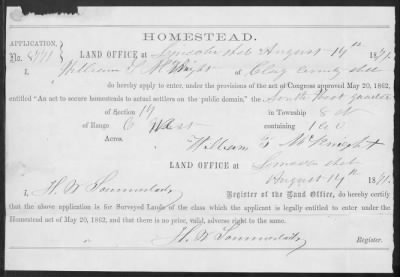 HOMESTEAD.
APPLICATION, No. 8471 LAND OFFICE at Lincoln Neb August 14th 1871.
I, William T McKnight of Clay County Neb
do hereby apply to enter, under the provisions of the act of Congress approved May 20, 1862,
entitled "An act to secure homesteads to actual settlers on the public domain," the South West quarter
of Section 14 in Township 8 N
of Range 6 West containing 160
Acres.
William T McKnight
LAND OFFICE at Lincoln Neb
August 14th 1871.
I, H. W. Sommerlad, Register of the Land Office, do hereby certify
that the above application is for Surveyed Lands of the class which the applicant is legally entitled to enter under the
Homestead act of May 20, 1862, and that there is no prior, valid, adverse right to the same.
H. W. Sommerlad
Register.